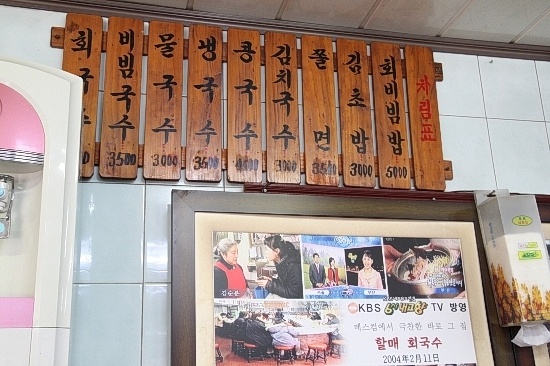 차림표
회비빔밥 5000
김초밥 3000
쫄면 3500
김치국수
콩국수 4000
냉국수 3500
물국수 3000
비빔국수 3500
회국수
김순분
KBS 내고향 TV 방영
매스컴에서 극찬한 바로 그 집
할매 회국수
2004년 2월 11일